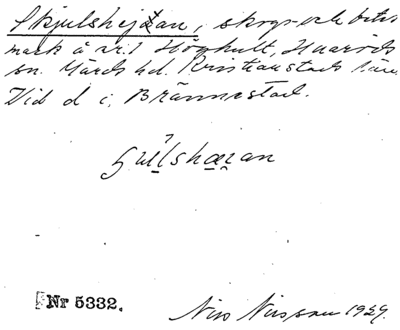 Skjulshejan, skogs- och betes-
mark å nr 1 Höghult, Huaröds
sn. Gärds hd. Kristianstads län.
Vid d i, Brännestad.
Nr 5332.
Nils Nilsson 1929.